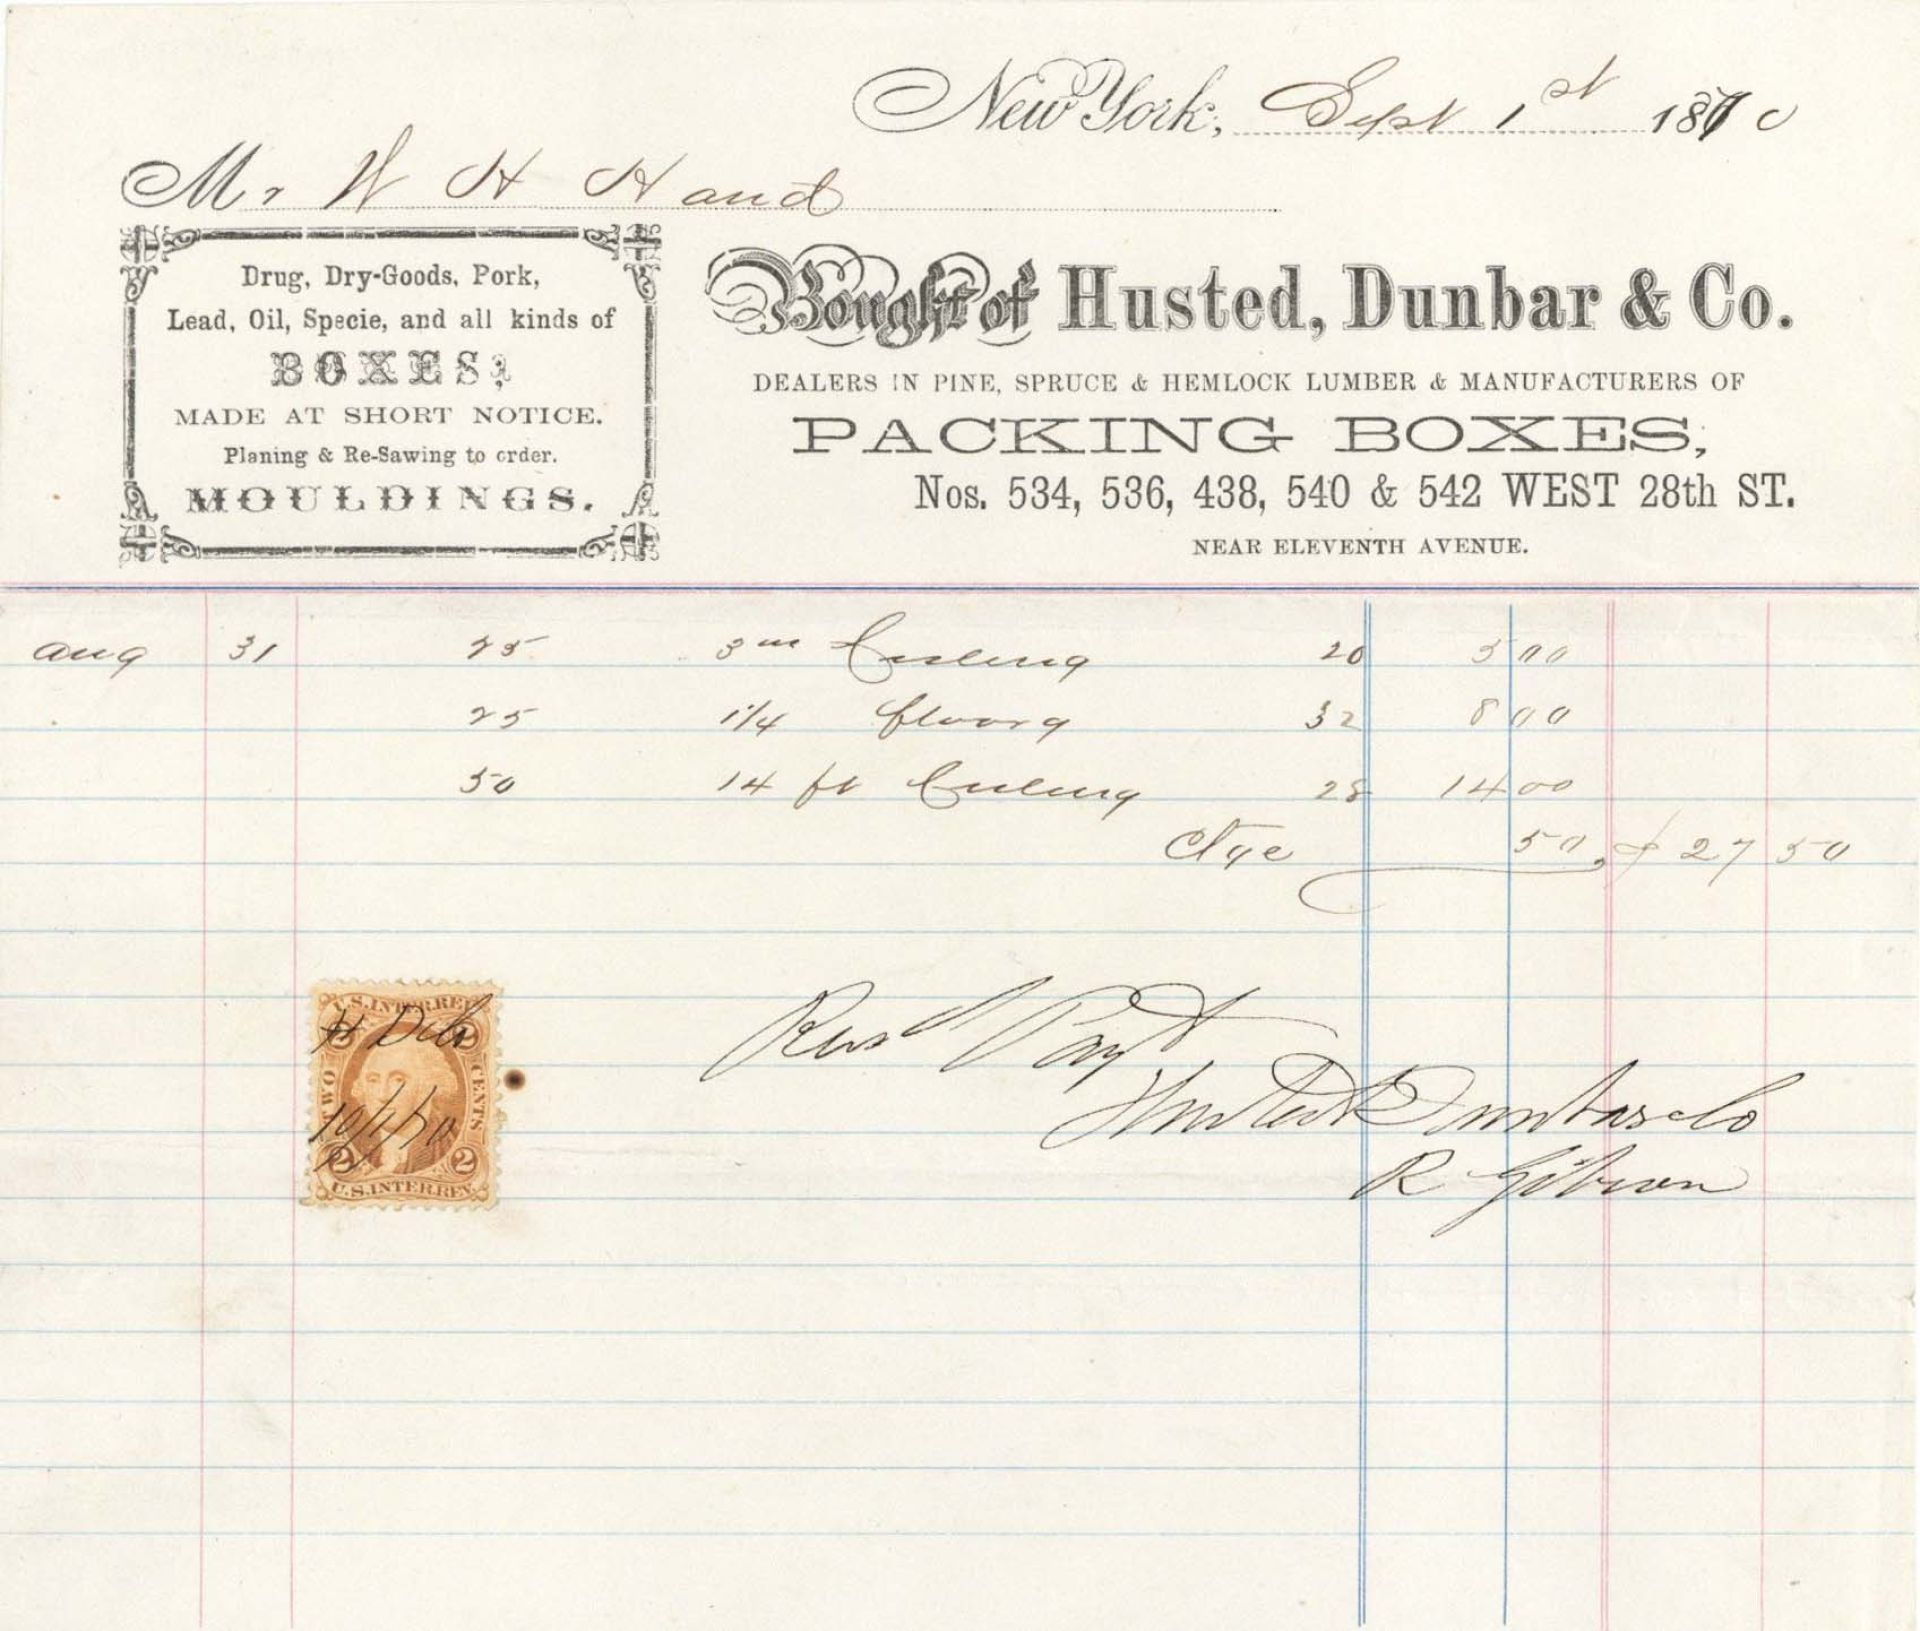 New York, Sept 1st 1870
Mr W H Hand
Drug, Dry-Goods, Pork,
Lead, Oil, Specie, and all kinds of
BOXES;
MADE AT SHORT NOTICE.
Planing & Re-Sawing to order.
MOULDINGS.
Bought of Husted, Dunbar & Co.
DEALERS IN PINE, SPRUCE & HEMLOCK LUMBER & MANUFACTURERS OF
PACKING BOXES,
Nos. 534, 536, 438, 540 & 542 WEST 28th ST.
NEAR ELEVENTH AVENUE.
Aug 31 25 3in Ceiling 20 5 00
25 1 1/4 floorg 32 8 00
50 14 ft Ceiling 28 14 00
Ctge 50, $27 50
U.S. INTER. REV.
2 2
TWO CENTS
10/1/70
2 2
U.S. INTER. REV.
Recd Payt
Husted Dunbar & Co
R Gibson